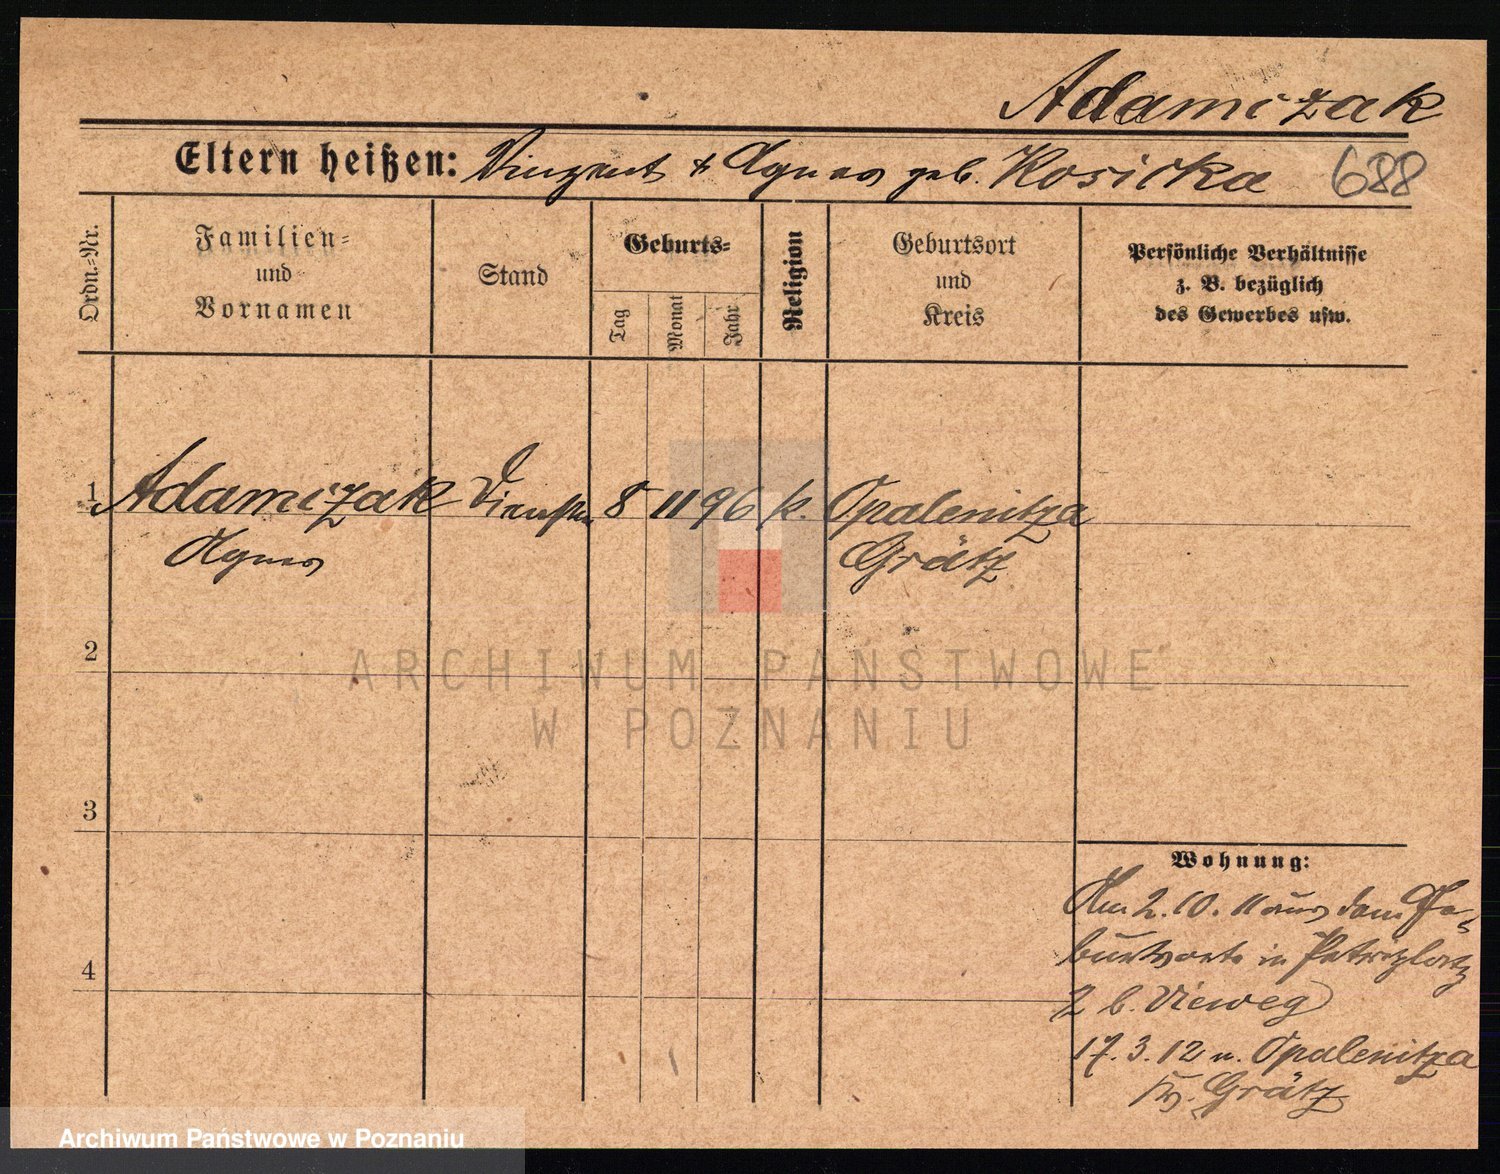 Adamczak
Eltern heißen: Vinzent & Agnes geb. Kosicka 688
Ordn.-Nr.
Familien-
und
Vornamen
Stand
Geburts-
Tag
Monat
Jahr
Religion
Geburtsort
und
Kreis
Persönliche Verhältnisse
z. B. bezüglich
des Gewerbes usw.
1 Adamczak Dienstm. 8 11 96 k. Opalenitza
Agnes Grätz
2
3
4
Wohnung:
Am 2.10.11 aus dem Ge-
burtsorte in Petriplatz
2 b. Vieweg
17.3.12 n. Opalenitza
Kr. Grätz
ARCHIWUM PAŃSTWOWE
W POZNANIU
Archiwum Państwowe w Poznaniu